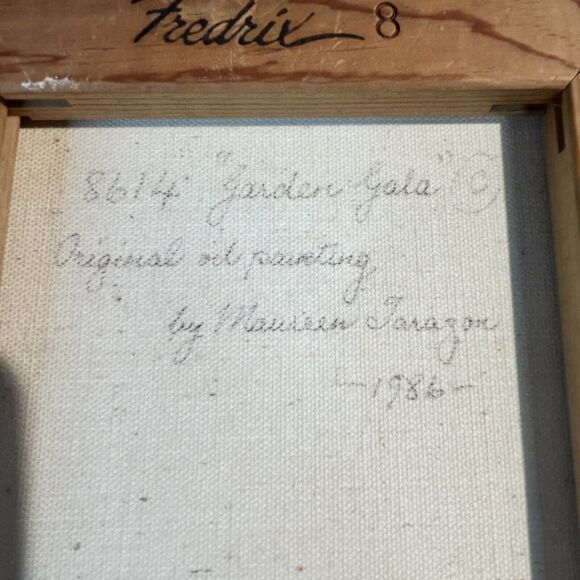 Fredrix 8
8614 "Garden Gala" ©
Original oil painting
by Maureen Taragon
-1986-